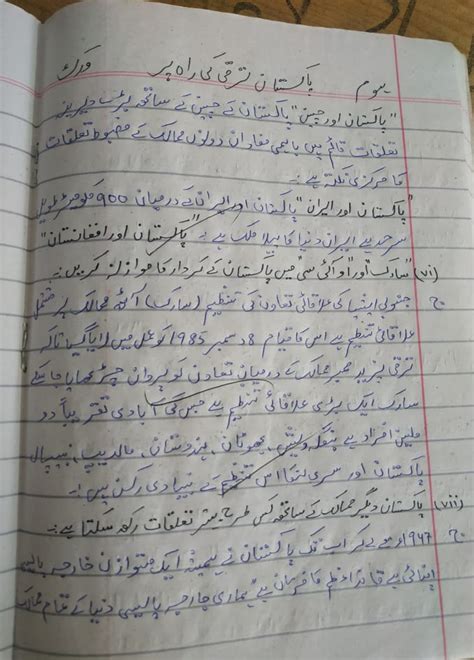 ہوم پاکستان ترقی کی راہ پر ورک
"پاکستان اور چین" پاکستان کے چین کے ساتھ بڑے دیرینہ
تعلقات قائم ہیں باہمی مفادات دونوں ممالک کے مضبوط تعلقات
کا مرکزی نکتہ ہے۔
"پاکستان اور ایران" پاکستان اور ایران کے درمیان 900 کلومیٹر طویل
سرحد ہے ایران دنیا کا پہلا ملک ہے۔ "پاکستان اور افغانستان"
(vi) "سارک اور" او آئی سی میں پاکستان کے کردار کا موازنہ کریں۔
ج جنوبی ایشیا کی علاقائی تعاون کی تنظیم (سارک) آٹھ ممالک پر مشتمل
علاقائی تنظیم ہے اس کا قیام 8 دسمبر 1985 کو عمل میں لایا گیا تاکہ
ترقی پزیر ممبر ممالک کے درمیان تعاون کو پروان چڑھایا جا سکے
سارک ایک بڑی علاقائی تنظیم ہے جس کی آبادی تقریباً دو
ملین افراد ہے بنگلہ دیش، بھوٹان، ہندوستان، مالدیپ، نیپال
پاکستان اور سری لنکا اس تنظیم کے بنیادی رکن ہیں۔
(vii) پاکستان دیگر ممالک کے ساتھ کس طرح بہتر تعلقات رکھ سکتا ہے۔
ج 1947ء سے لے کر اب تک پاکستان نے ہمیشہ ایک متوازن خارجہ پالیسی
اپنائی ہے قائد اعظم کا فرمان ہے ہماری خارجہ پالیسی دنیا کے تمام ممالک